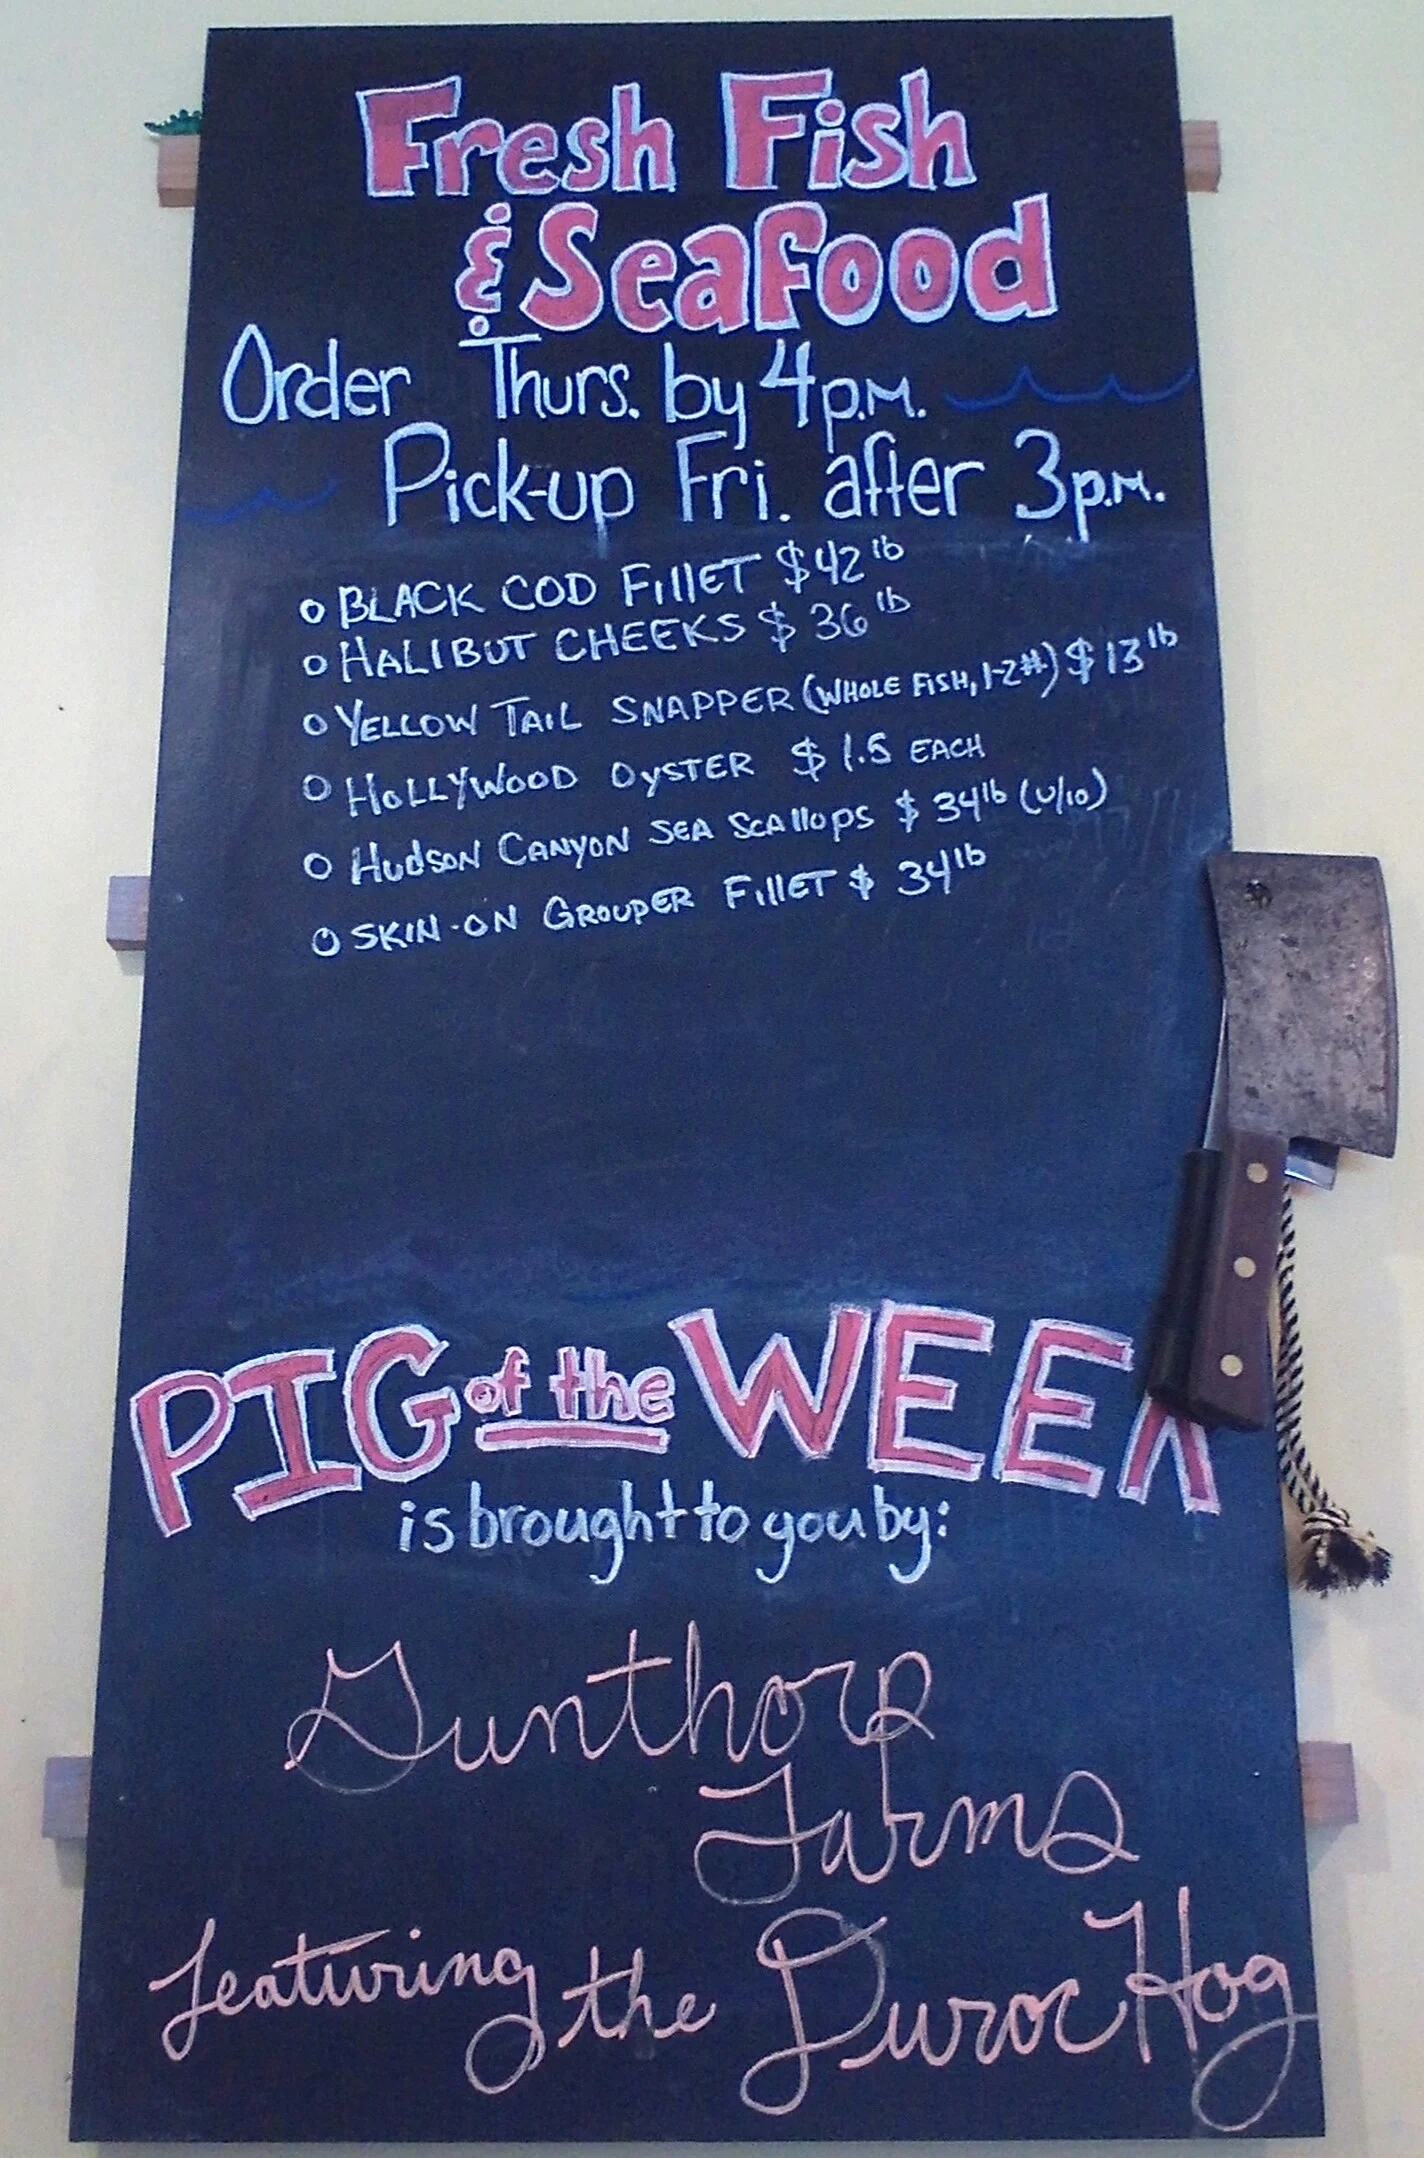 Fresh Fish
& Seafood
Order Thurs. by 4 p.m.
Pick-up Fri. after 3 p.m.
BLACK COD FillET $42 lb
HALIBUT CHEEKS $36 lb
YELLOW TAIL SNAPPER (WHOLE FISH, 1-2#) $13 lb
HOLLYWOOD OYSTER $1.5 EACH
HUdSON CANYON SEA SCAllOPS $34 lb (U/10)
SKIN-ON GROUPER FillET $34 lb
PIG of the WEEK
is brought to you by:
Gunthorp
Farms
featuring the Duroc Hog